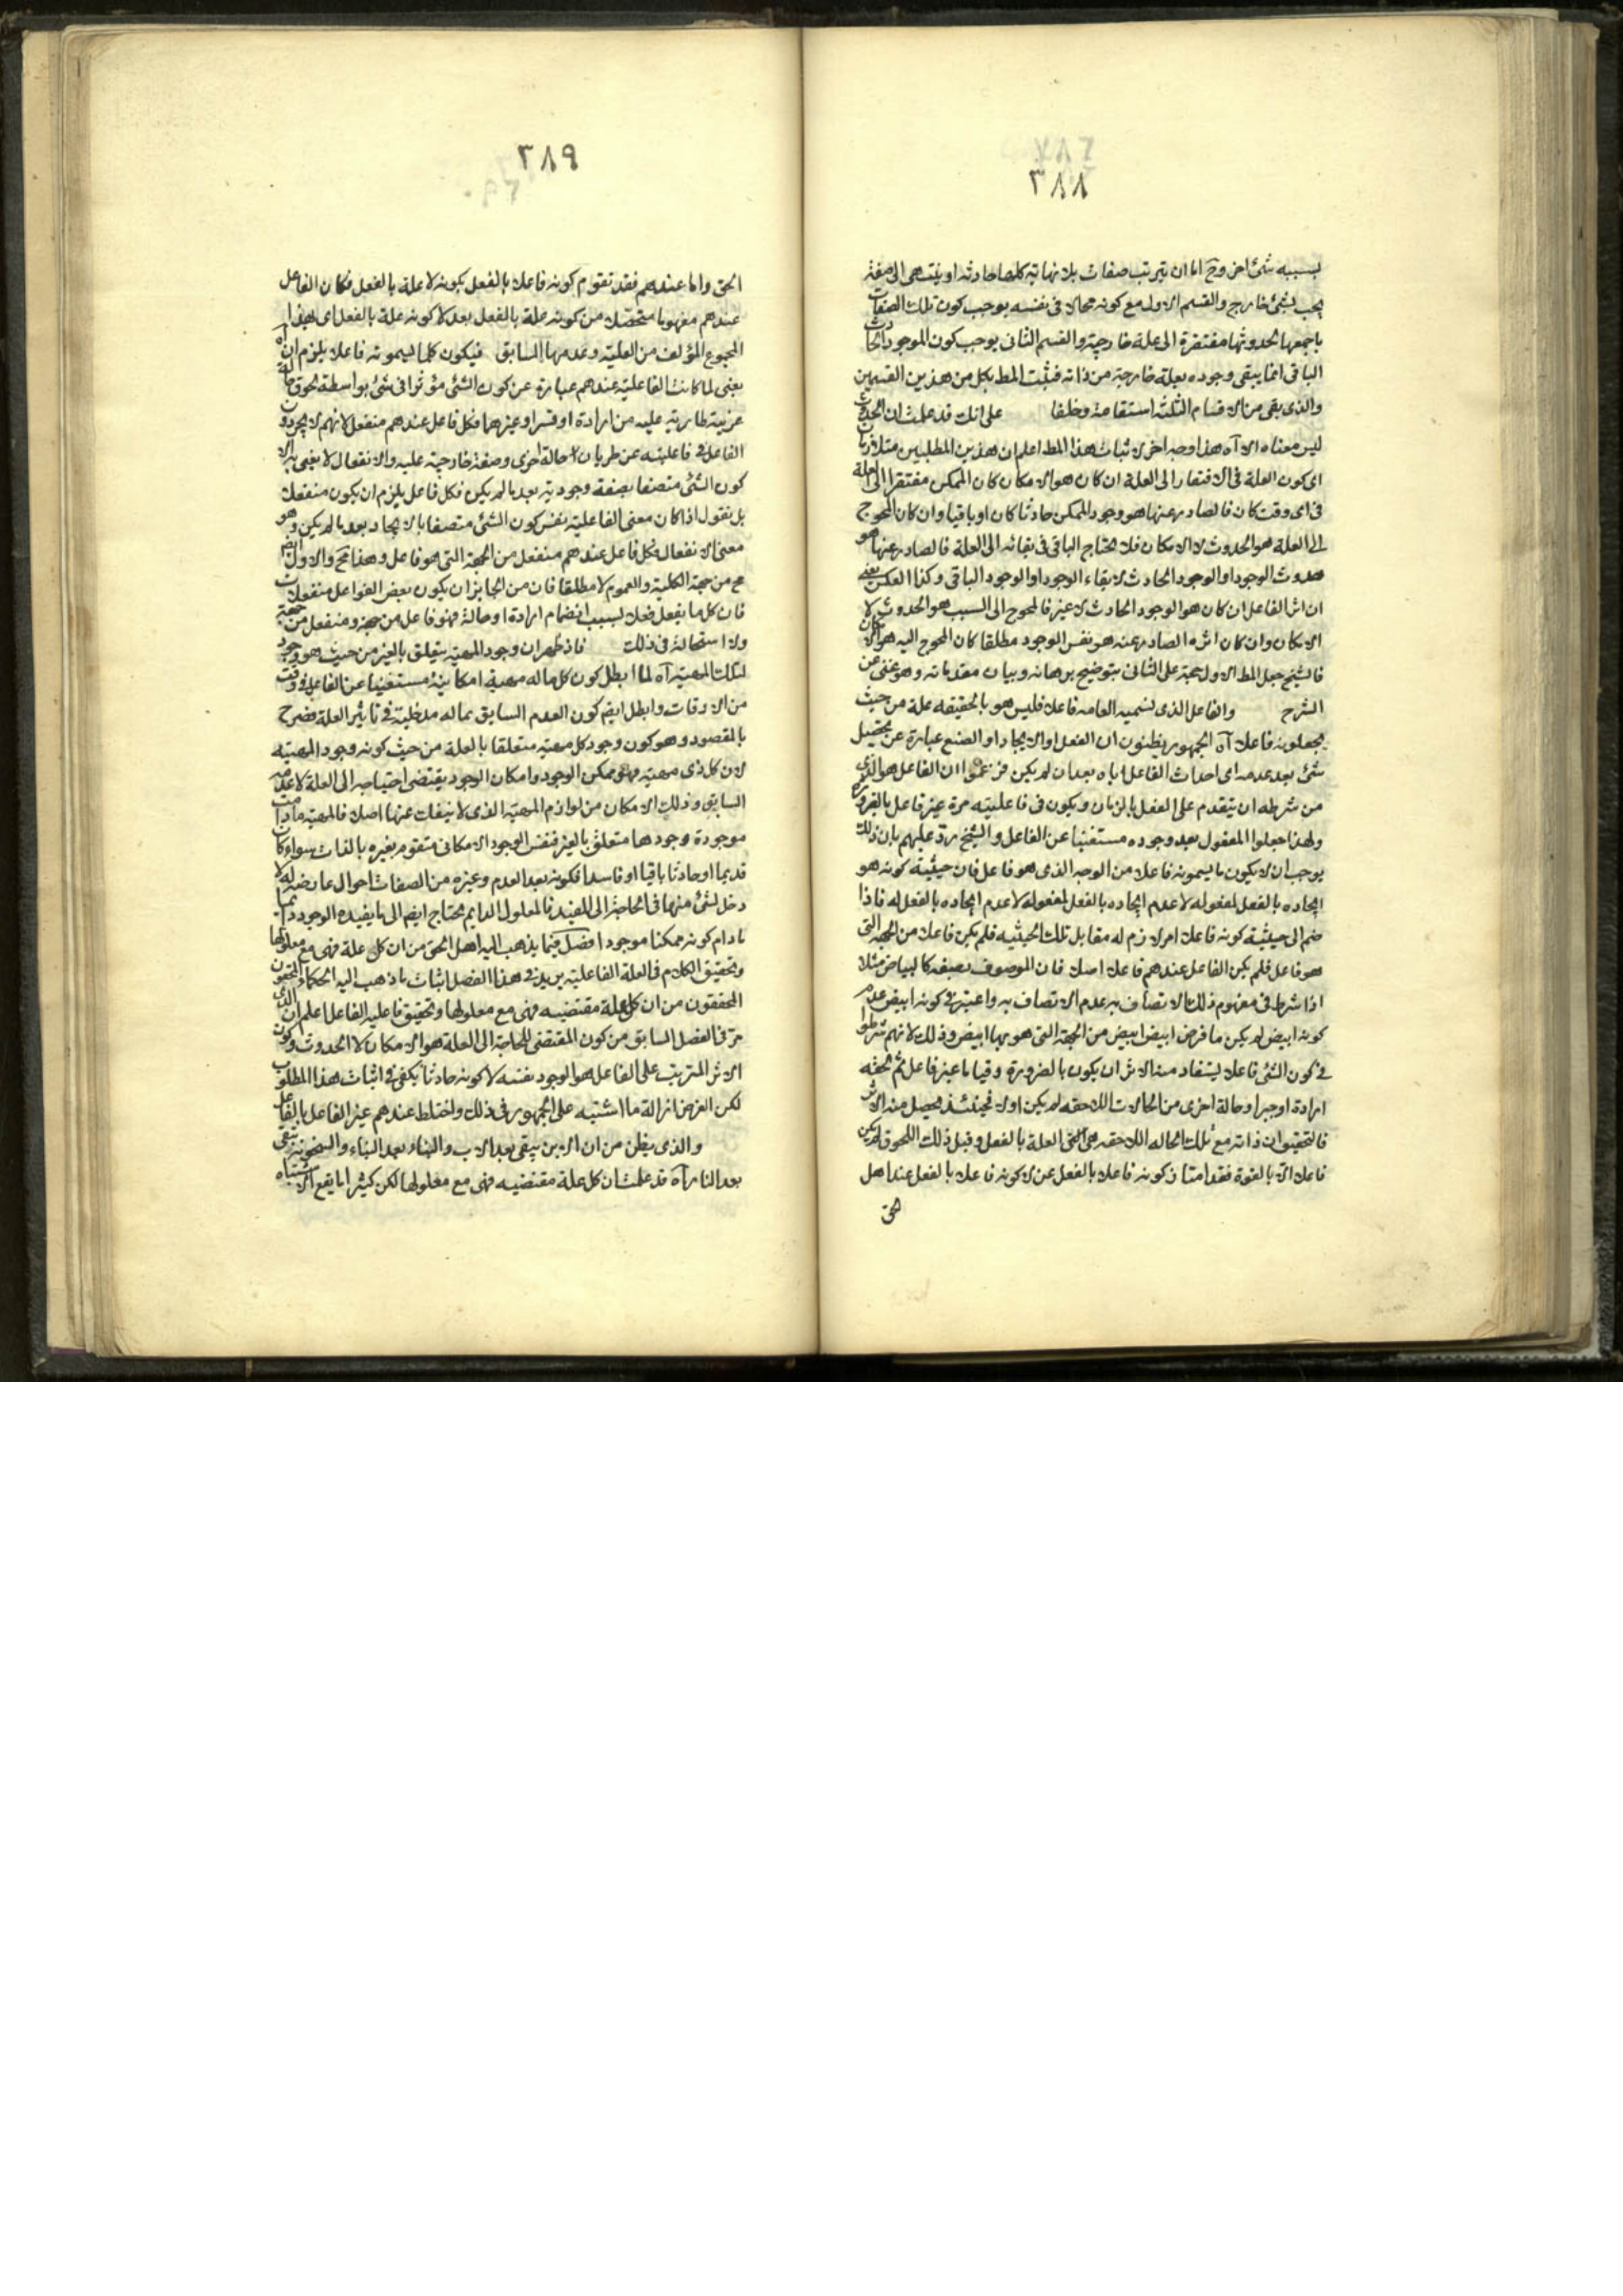 ٢٨٨
بسببه شئ اخر وح اما ان يترتب صفات بلا نهاية كلها حادثه او ينتهى الى صفة
يجب بشئ خارج والقسم الاول مع كونه محالا فى نفسه يوجب كون تلك الصفات
باجمعها لحدوثها مفتقرة الى علة خارجية والقسم الثانى يوجب كون الموجود الحادث
الباقى انما يبقى وجوده بعلة خارجة من ذاته فيثبت المط بكل من هذين القسمين
والذى بقى من الاقسام الثلثه استقامة وخلفا على انك قد علمت ان الحدوث
ليس معناه الا آه هذا وجه اخر لاثبات هذا المط اعلم ان هذين المطلبين متلازمان
اى كون العلة فى الافتقار الى العلة ان كان هو الامكان كان الممكن مفتقرا الى العلة
فى اى وقت كان فالصادر عنها هو وجود الممكن حادثا كان او باقيا وان كان المحوج
الى العلة هو الحدوث لا الامكان فلا يحتاج الباقى فى بقائه الى العلة فالصادر عنها هو
حدوث الوجود او الوجود الحادث لا بقاء الوجود او الوجود الباقى وكذا العكس يعنى
ان اثر الفاعل ان كان هو الوجود الحادث لا غير فالمحوج الى السبب هو الحدوث لا
الامكان وان كان اثره الصادر عنه هو نفس الوجود مطلقا كان المحوج اليه هو الامكان
فالشيخ جعل المط الاول حجة على الثانى بتوضيح برهانه وبيان مقدماته وهو غنى عن
الشرح والفاعل الذى تسميه العامه فاعلا فليس هو بالحقيقه علة من حيث
يجعلونه فاعلا آه الجمهور يظنون ان الفعل او الايجاد او الصنع عبارة عن تحصيل
شئ بعد عدمه اى احداث الفاعل اياه بعد ان لم يكن فزعموا ان الفاعل هو الذى
من شرطه ان يتقدم على الفعل بالزمان ويكون فى فاعليته مرة غير فاعل بالضرورة
ولهذا جعلوا المفعول بعد وجوده مستغنيا عن الفاعل والشيخ رد عليهم بان ذلك
يوجب ان لا يكون ما يسمونه فاعلا من الوجه الذى هو فاعل فان حيثية كونه هو
ايجاده بالفعل لمفعوله لا عدم ايجاده بالفعل لمفعوله لا عدم ايجاده بالفعل له فاذا
ضم الى حيثية كونه فاعلا امر لازم له مقابل تلك الحيثيه فلم يكن فاعلا من الجهه التى
هو فاعل فلم يكن الفاعل عندهم فاعلا اصلا فان الموصوف بصفه كالبياض مثلا
اذا شرط فى مفهوم ذلك الاتصاف به عدم الاتصاف به واعتبر فى كونه ابيض عدم
كونه ابيض لم يكن ما فرض ابيض ابيض من الجهة التى هو بها ابيض وذلك لانهم شرطوا
فى كون الشئ فاعلا يستفاد منه الاثر ان يكون بالضرورة وقتا ما غير فاعل ثم لحقه
ارادة او جبر او حالة اخرى من الحالات اللاحقه لم يكن اولا فحينئذ يحصل منه الاثر
فالتحقيق ان ذاته مع تلك الحاله اللاحقه هى العلة بالفعل وقبل ذلك اللحوق لم يكن
فاعلا الا بالقوة فقد امتاز كونه فاعلا بالفعل عن لا كونه فاعلا بالفعل عند اهل
الحق
٢٨٩
الحق واما عندهم فقد تقوم كونه فاعلا بالفعل بكونه لا علة بالفعل فكان الفاعل
عندهم مفهوما متحصلا من كونه علة بالفعل بعد لا كونه علة بالفعل اى هذا
المجموع المؤلف من العلية وعدمها السابق فيكون كلما يسمونه فاعلا يلزم ان آه
يعنى لما كانت الفاعلية عندهم عبارة عن كون الشئ مؤثرا فى شئ بواسطة لحوق حالة
غريبة طارية عليه من ارادة او قسر او غيرهما فكل فاعل عندهم منفعل لانهم لا يجردون
الفاعل فى فاعليته عن طريان حالة اخرى وصفة خارجية عليه والانفعال لا يعنى به الا
كون الشئ متصفا بصفة وجودية بعد ما لم يكن فكل فاعل يلزم ان يكون منفعلا
بل نقول اذا كان معنى الفاعلية نفس كون الشئ متصفا بالايجاد بعد ما لم يكن وهو
معنى الانفعال فكل فاعل عندهم منفعل من الجهة التى هو فاعل وهذا مح والاول ايضا
مح من جهة الكلية والعموم لا مطلقا فان من الجايز ان يكون بعض الفواعل منفعلات
فان كل ما يفعل فعلا بسبب انضمام ارادة او حالة فهو فاعل من جهة ومنفعل من جهة
ولا استحالة فى ذلك فاذ ظهر ان وجود المهية يتعلق بالغير من حيث هو وجود
لتلك المهية آه لما ابطل كون كل ما له مهية امكانية مستغنيا عن الفاعل فى وقت
من الاوقات وابطل ايضا كون العدم السابق مما له مدخلية فى تاثير العلة فصرح
بالمقصود وهو كون وجود كل مهية متعلقا بالعلة من حيث كونه وجود المهية
لان كل ذى مهية فهو ممكن الوجود وامكان الوجود يقتضى احتياجه الى العلة لا عدمه
السابق وذلك الامكان من لوازم المهية الذى لا ينفك عنها اصلا فالمهية ما دامت
موجودة وجودها متعلق بالغير فنفس الوجود الامكانى متقوم بغيره بالذات سواء كان
قديما او حادثا باقيا او فاسدا فكونه بعد العدم وغيره من الصفات احوال عارضه له لا
دخل لشئ منها فى الحاجة الى المفيد فالمعلول الدايم يحتاج ايضا الى ما يفيده الوجود دائما
ما دام كونه ممكنا موجودا فصل فيما يذهب اليه اهل الحق من ان كل علة فهى مع معلولها
وتحقيق الكلام فى العلة الفاعلية يريد فى هذا الفصل اثبات ما ذهب اليه الحكماء المحقون
المحققون من ان كل علة مقتضيه فهى مع معلولها وتحقيق فاعليه الفاعل اعلم ان الذى
مر فى الفصل السابق من كون المقتضى للحاجة الى العلة هو الامكان لا الحدوث وكون
الاثر المترتب على الفاعل هو الوجود نفسه لا كونه حادثا يكفى فى اثبات هذا المطلوب
لكن الغرض ازالة ما اشتبه على الجمهور فى ذلك واختلط عندهم غير الفاعل بالفاعل
والذى يظن من ان الابن يبقى بعد الاب والبناء بعد البناء والسخونة تبقى
بعد النار آه قد علمت ان كل علة مقتضيه فهى مع معلولها لكن كثيرا ما يقع الاشتباه